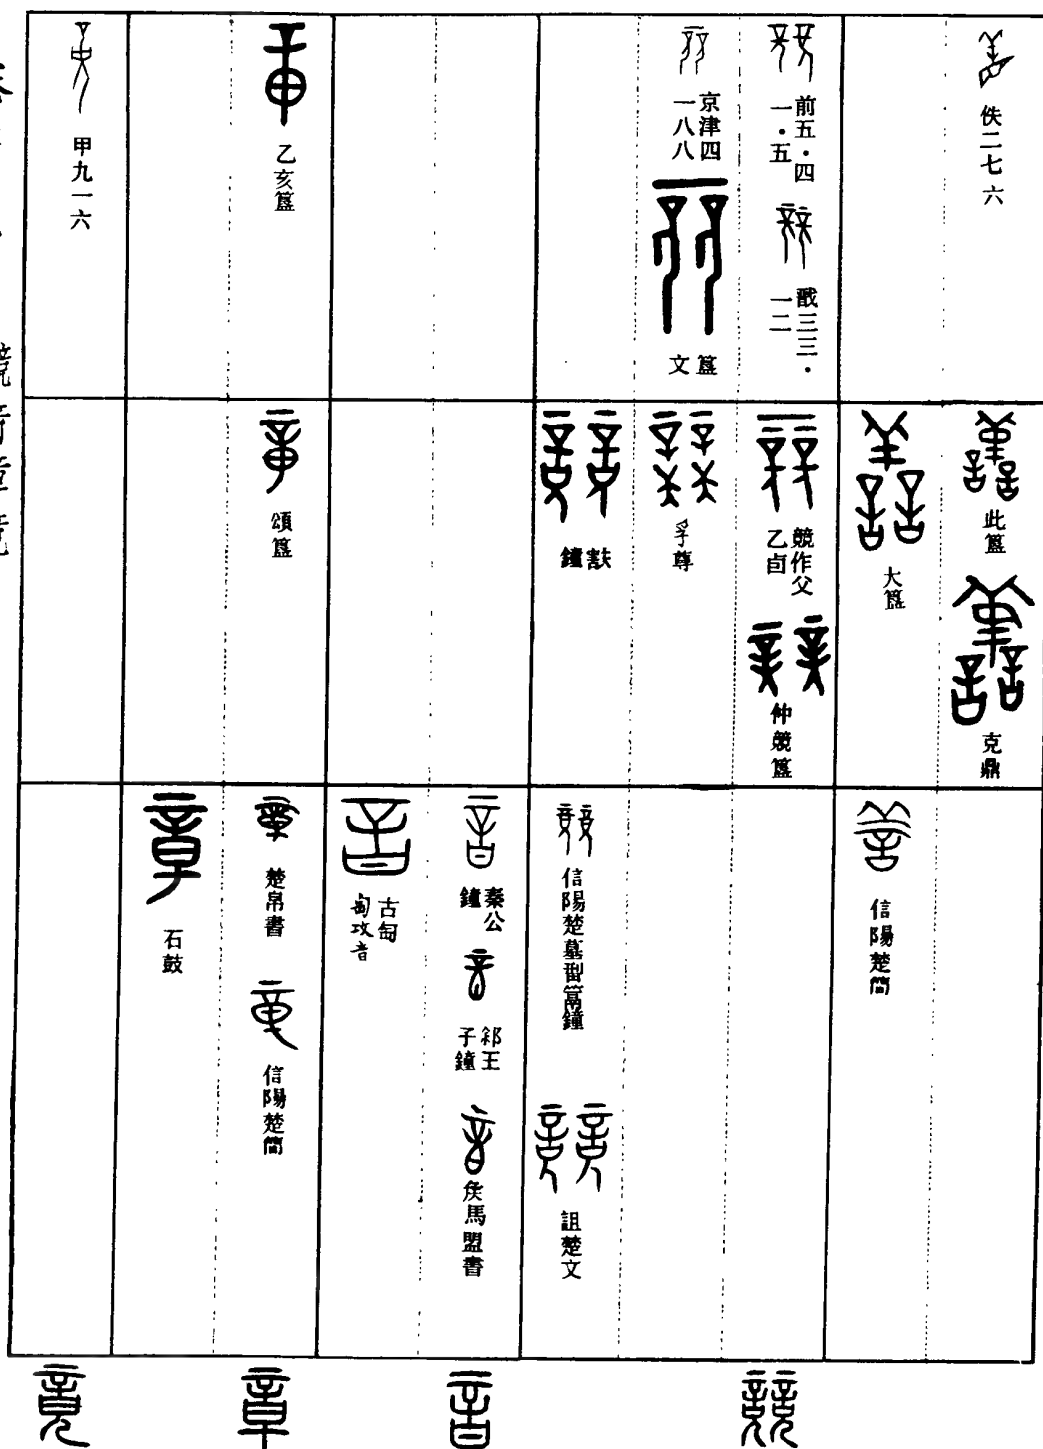 佚二七六
前五·四一·五
戩三三·一二
京津四一八八
簋文
乙亥簋
甲九一六
此簋
克鼎
大簋
競作父乙卣
仲競簋
孚尊
㝬鐘
頌簋
信陽楚簡
信陽楚墓𠛱篙鐘
詛楚文
秦公鐘
䣄王子鐘
侯馬盟書
古匋
匋攻音
楚帛書
信陽楚簡
石鼓
競
音
章
竟
競音章竟